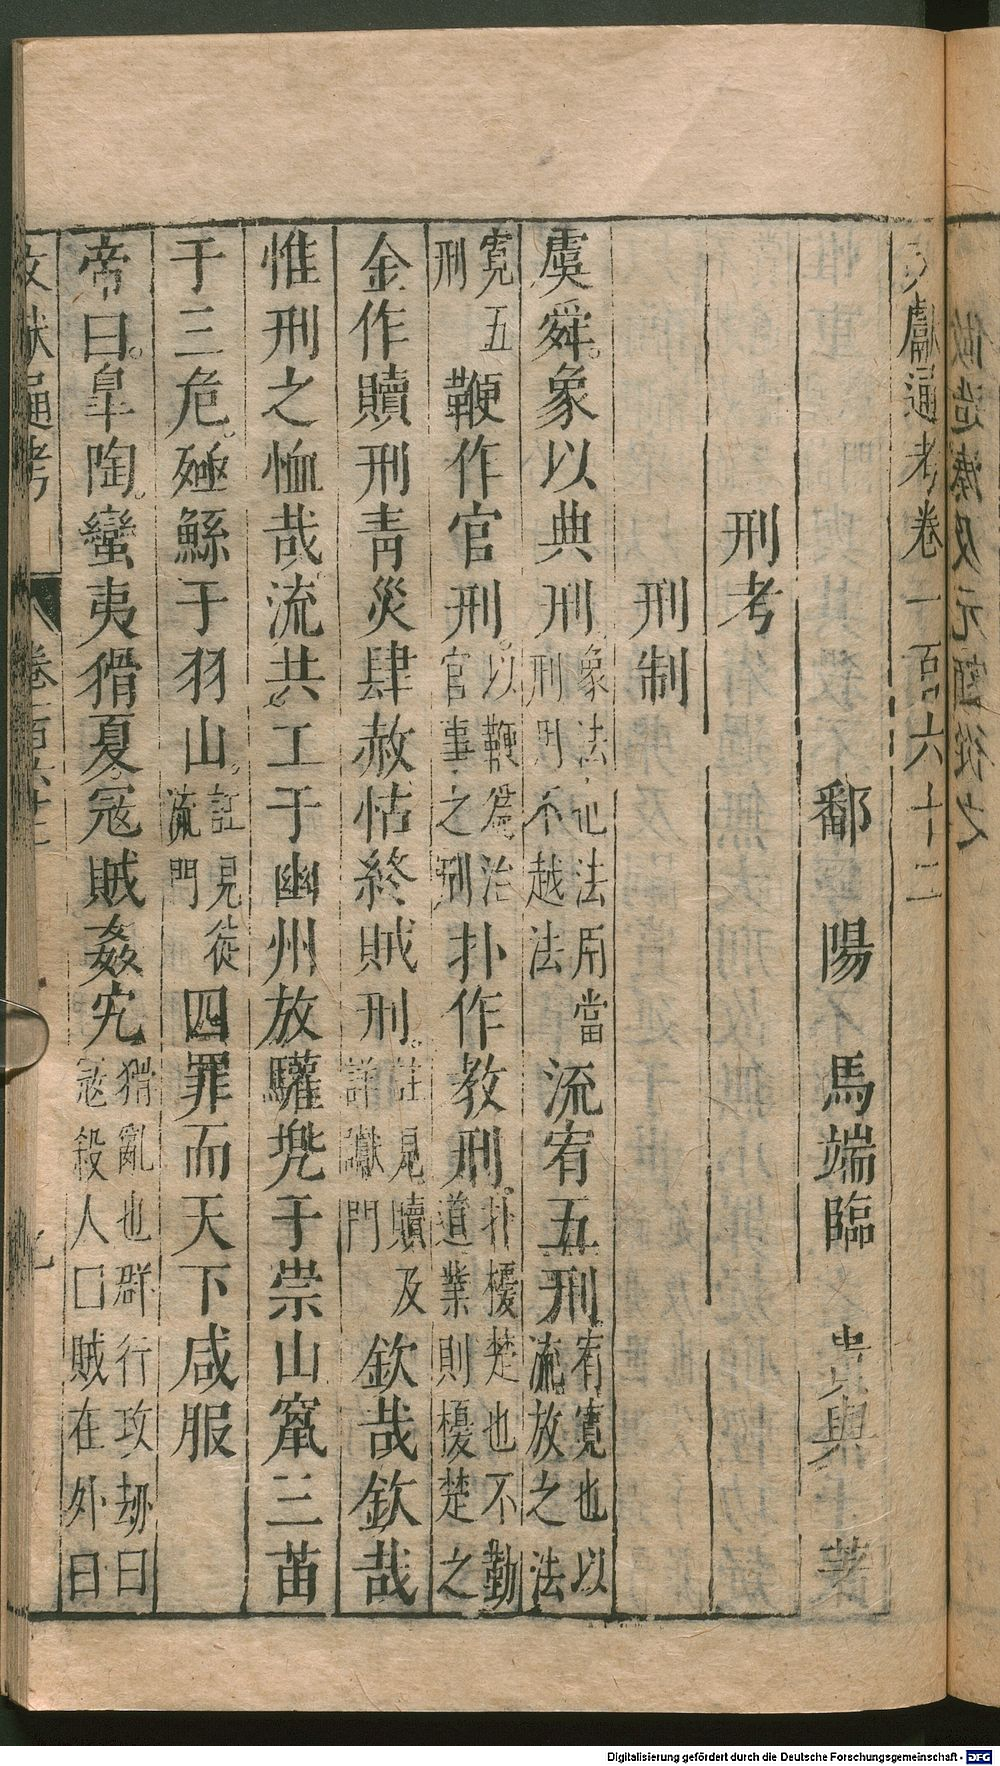 文獻通考卷一百六十二
鄱陽 馬端臨 貴與 著
刑考
刑制
虞舜象以典刑象法也法用當刑刑不越法流宥五刑宥寬也以流放之法
寬五刑鞭作官刑以鞭爲治官事之刑扑作教刑扑榎楚也不勤道業則榎楚之
金作贖刑眚災肆赦怙終賊刑註見贖及詳讞門欽哉欽哉
惟刑之恤哉流共工于幽州放驩兜于崇山竄三苗
于三危殛鯀于羽山註見徙流門四罪而天下咸服
帝曰皐陶蠻夷猾夏寇賊姦宄猾亂也群行攻刼曰寇殺人曰賊在外曰
文獻通考 卷一百六十二
Digitalisierung gefördert durch die Deutsche Forschungsgemeinschaft - DFG